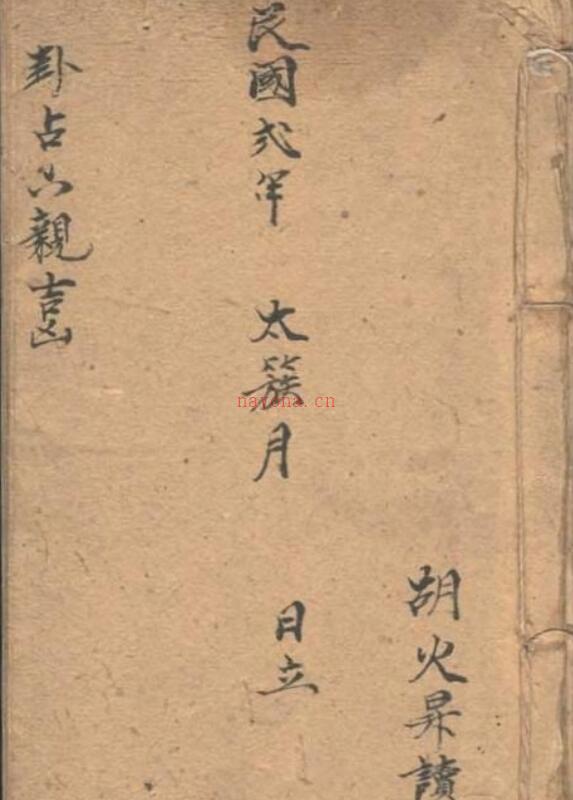 胡火昇讀
民國弍年 太簇月 日立
卦占六親吉凶
nayona.cn